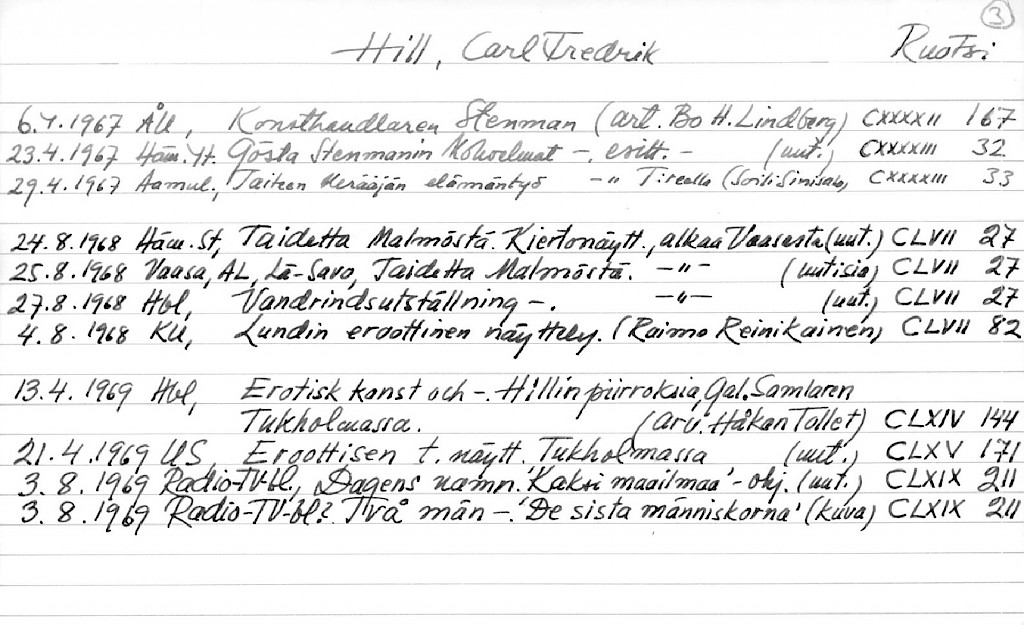 3
Hill, Carl Fredrik Ruotsi
6.4.1967 ÅU, Konsthandlaren Stenman (art. Bo H. Lindberg) CXXXXII 167
23.4.1967 Häm. Yt. Gösta Stenmanin Kohoelmat -, esitt. - (uut.) CXXXXIII 32
29.4.1967 Aamul., Taiteen kerääjän elämäntyö -"- T:reella (Soili Sinisalo, CXXXXIII 33
24.8.1968 Häm. St, Taidetta Malmöstä. Kiertonäytt., alkaa Vaasasta (uut.) CLVII 27
25.8.1968 Vaasa, AL, Lä-Savo, Taidetta Malmöstä. -"- (uutisia) CLVII 27
27.8.1968 Hbl, Vandrindsutställning -. -"- (uut.) CLVII 27
4.8.1968 KU, Lundin eroottinen näyttely. (Raimo Reinikainen) CLVII 82
13.4.1969 Hbl, Erotisk konst och -. Hillin piirroksia, Gal. Samlaren
Tukholmassa. (arv. Håkan Tollet) CLXIV 144
21.4.1969 US, Eroottisen t. näytt. Tukholmassa (uut.) CLXV 171
3.8.1969 Radio-TV-bl., Dagens namn. 'Kaksi maailmaa' - ohj. (uut.) CLXIX 211
3.8.1969 Radio-TV-bl? Två män -. 'De sista människorna' (kuva) CLXIX 211